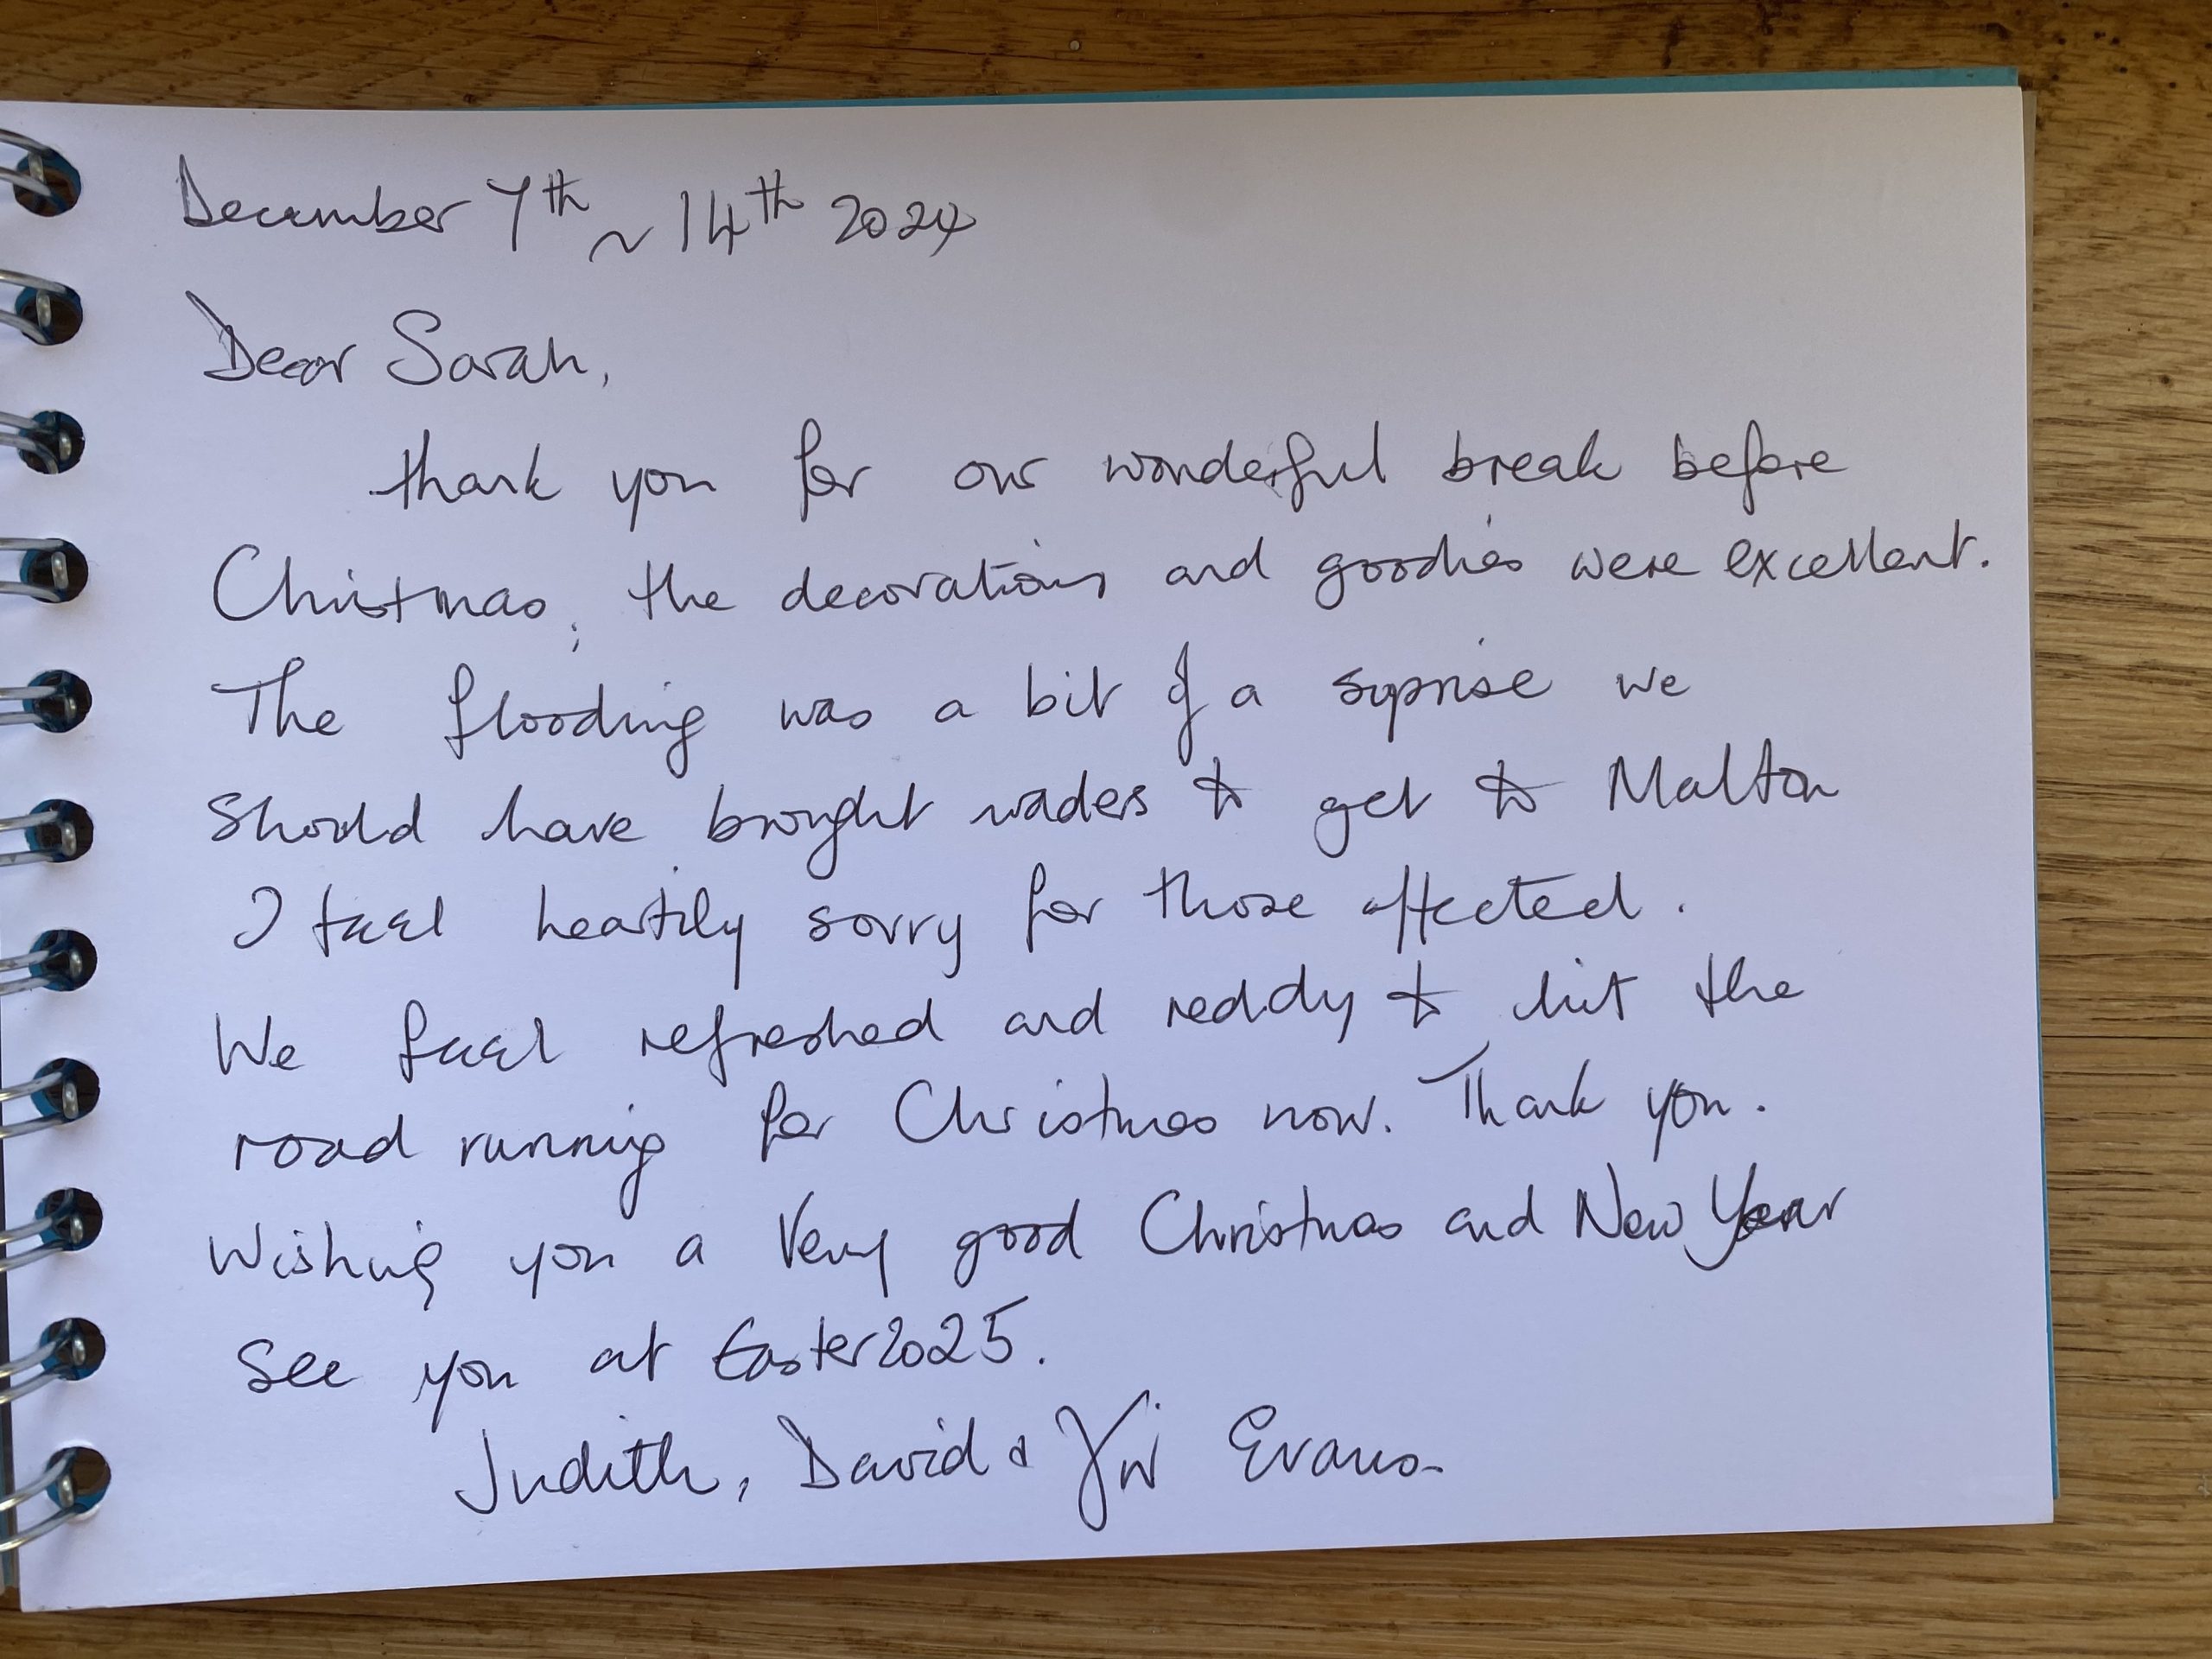 December 7th ~ 14th 2024
Dear Sarah,
thank you for our wonderful break before
Christmas; the decorations and goodies were excellent.
The flooding was a bit of a suprise we
should have brought waders to get to Malton
I feel heartily sorry for those affected.
We feel refreshed and reddy to hit the
road running for Christmas now. Thank you.
Wishing you a very good Christmas and New Year
See you at Easter 2025.
Judith, David & Evans.